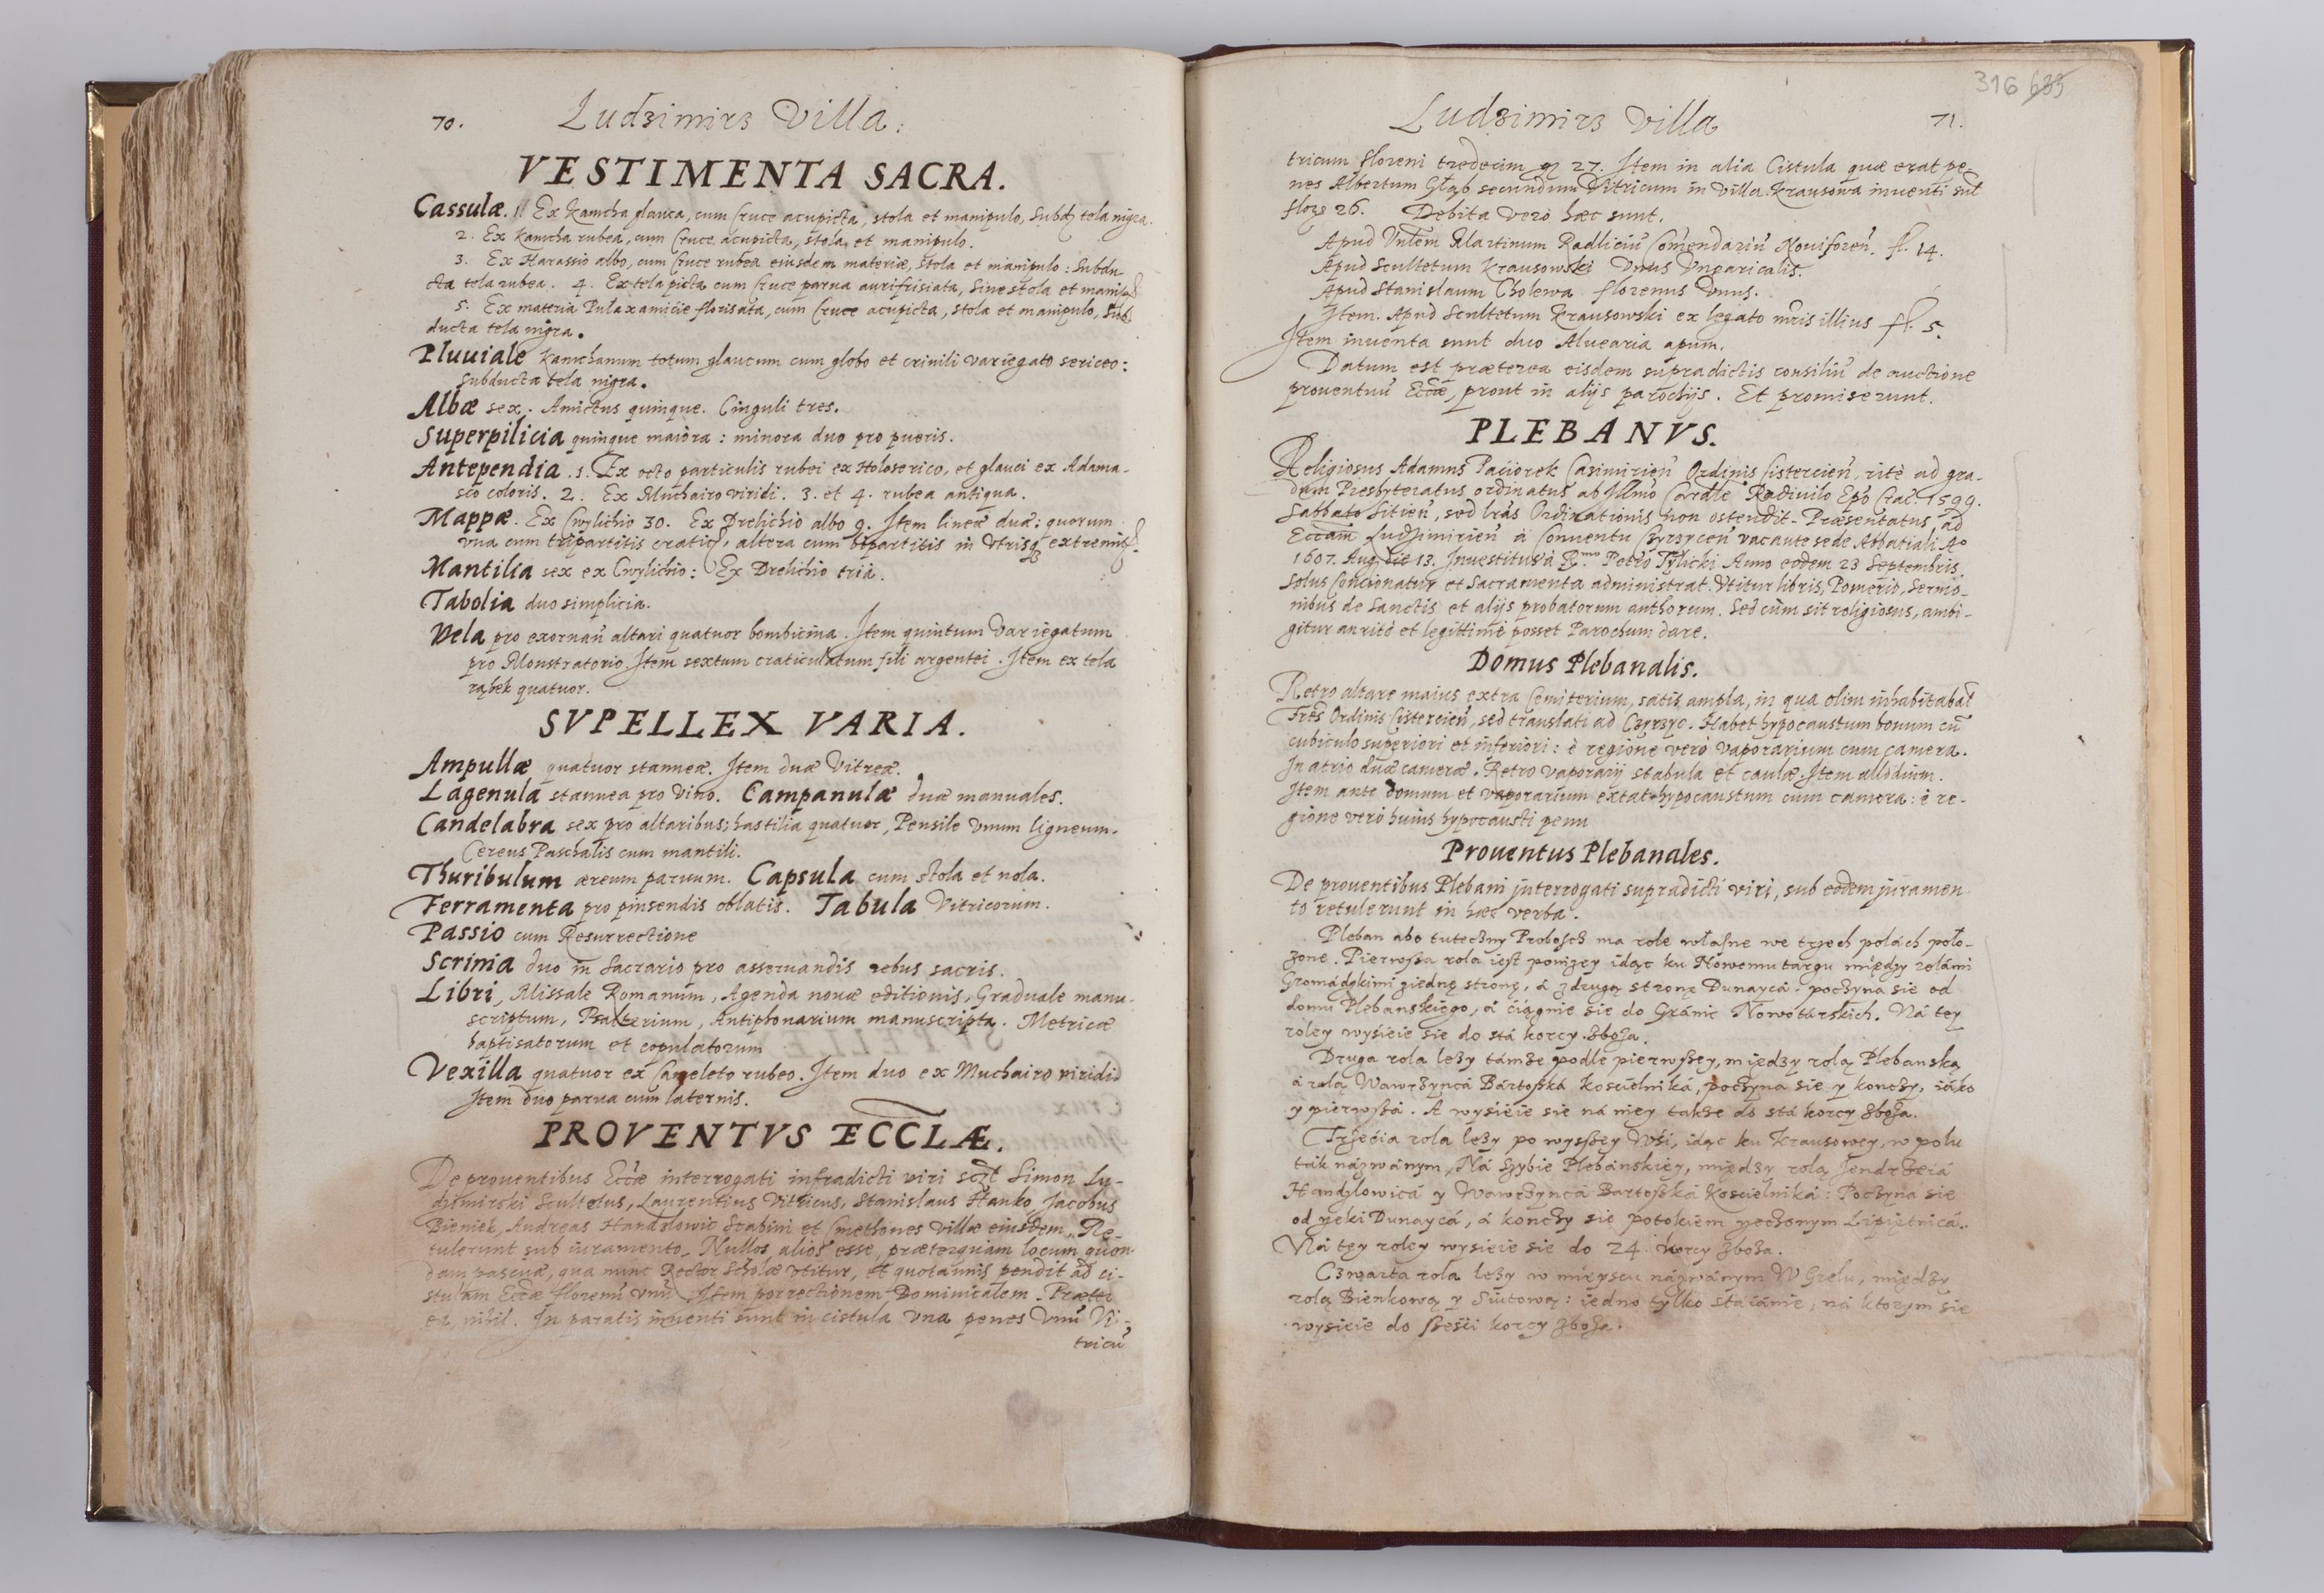 70. Ludzimirz Villa.
VESTIMENTA SACRA.
Cassulæ. 1. Ex Kamcha glauca, cum Cruce acupicta, stola et manipulo, subd. tela nigra.
2. Ex Kamcha rubea, cum Cruce acupicta, stola et manipulo.
3. Ex Harassio albo, cum Cruce rubea eiusdem materiæ, stola et manipulo: Subdu-
cta tela rubea. 4. Ex tela picta cum Cruce parua aurifrisiata, sine stola et
5. Ex materia florisata, cum Cruce acupicta, stola et manipulo, sub
ducta tela nigra.
Pluuiale Kamchanum totum glaucum cum globo et crinili variegato sericeo:
subducta tela nigra.
Albæ sex. Amictus quinque. Cinguli tres.
Superpilicia quinque maiora: minora duo pro pueris.
Antependia. 1. Ex octo particulis rubei ex Holoserico, et glauci ex Adama-
sco coloris. 2. Ex Muchairo viridi. 3. et 4. rubea antiqua.
Mappæ. Ex Cwylichio 30. Ex Drelichio albo 9. Item lineæ duæ: quorum
vna cum tripartitis altera cum bipartitis in vtrisq extremis.
Mantilia sex ex Cwylichio: Ex Drelichio tria.
Tabolia duo simplicia.
Vela pro exornan altari quatuor bombicina. Item quintum variegatum
pro Monstratorio. Item sextum craticulatum fili argentei. Item ex tela
rąbek quatuor.
SVPELLEX VARIA.
Ampullæ quatuor stanneæ. Item duæ Vitreæ.
Lagenula stannea pro vino. Campanulæ duæ manuales.
Candelabra sex pro altaribus; hastilia quatuor, Pensile vnum ligneum.
Cereus Paschalis cum mantili.
Thuribulum æreum paruum. Capsula cum stola et nola.
Ferramenta pro pinsendis oblatis. Tabula Vitricorum.
Passio cum Resurrectione
Scrinia duo in Sacrario pro asseruandis rebus sacris.
Libri, Missale Romanum, Agenda nouæ editionis, Graduale manu-
scriptum, Psalterium, Antiphonarium manuscripta. Metricæ
baptisatorum et copulatorum
Vexilla quatuor ex Cameleto rubeo. Item duo ex Muchairo viridi
Item duo parua cum laternis.
PROVENTVS ECCLÆ.
De prouentibus Eccæ interrogati infradicti viri sczt Simon Lu-
dzimirski Scultetus, Laurentius Vitricus, Stanislaus Hanko, Jacobus
Bieniek, Andreas Handzlowic Scabini et Cmethones villæ eiusdem. Re-
tulerunt sub iuramento. Nullos alios esse, præterquam locum quon-
dam pascuæ, qua nunc Rector Scholæ vtitur, et quotannis pendit ad ci-
stulam Eccæ florenu vnu Item porrectionem Dominicalem. Præter
ea nihil. In paratis inuenti sunt in cistula vna penes vnu Vi-
tricu
316
Ludzimirz Villa 71.
tricum floreni tredecim 27. Item in alia Cistula quæ erat pe-
nes Albertum Głąb secundum Vitricum in villa Krausowa inuenti sut
26. Debita vero hæc sunt.
Apud Martinum Radliciu Comendariu Nouiforen. fl. 14.
Apud Scultetum Krausowski vnus Vngaricalis.
Apud Stanislaum Cholewa florenus vnus.
Item. Apud Scultetum Krausowski ex legato mris illius fl. 5.
Item inuenta sunt duo Aluearia apum.
Datum est præterea eisdem supradictis consiliu de auctione
prouentuu Eccæ, prout in alijs parochijs. Et promiserunt.
PLEBANVS.
Religiosus Adamus Paciorek Casimirien Ordinis Cistercien, ritè ad gra-
dum Presbyteratus ordinatus ab Illmo Cardle Radiuilo Epo Crac. 1599.
Sabbato Sitien, sed lras Ordinationis non ostendit. Præsentatus ad
Eccam Ludzimirien à Conuentu Czyrzycen vacante sede Abbatiali Ao
1607. Aug. die 13. Inuestitus à Rmo Petro Tylicki Anno eodem 23 Septembris
Solus concionatur et Sacramenta administrat. Vtitur libris, Pomerio, Sermo-
nibus de Sanctis et alijs probatorum authorum. Sed cùm sit religiosus, ambi-
gitur an ritè et legittimè posset Parochum dare.
Domus Plebanalis.
Retro altare maius extra Cemiterium, satis ampla, in qua olim inhabitabat
Fres Ordinis Cistercien, sed translati ad Czyrzyc. Habet hypocaustum bonum cu
cubiculo superiori et inferiori: è regione verò vaporarium cum camera.
In atrio duæ cameræ. Retro vaporarij stabula et caulæ. Item allodium.
Item ante domum et vaporarium extat hypocaustum cum camera: è re-
gione verò huius hypocausti penu
Prouentus Plebanales.
De prouentibus Plebani interrogati supradicti viri, sub eodem juramen-
to retulerunt in hæc verba.
Pleban abo tuteczny Proboszcz ma role własne we trzech polách poło-
zone. Pierwsza rola iest ponizey idąc ku Nowemutargu między rolámi
Gromádzkimi ziednę stronę, á z drugą stronę Dunaycá. poczyna sie od
domu Plebanskiego, á ciągnie sie do Gránic Nowotárskich. Ná tey
roley wysieie sie do stá korcy zboża.
Druga rola leży támże podle pierwszey, między rolą Plebanską
á rolą Wawrzyncá Bártoszká kościelniká, poczyna sie y konczy, iáko
y pierwsza. A wysieie sie ná niey także do stá korcy zboża.
Trzecia rola leży powyszey Wsi, idąc ku Krausowey, w polu
ták názwánym, Ná Szybie Plebánskiey, między rolą Jendrzeiá
Handzlowicá y Wawrzyncá Bartoszká Kościelniká: Poczyna sie
od rzeki Dunaycá, á konczy sie potokiem rzeczonym Lipiętnicá.
Ná tey roley wysieie sie do 24. korcy zboża.
Czwarta rola leży w mieyscu názwánym W Grelu, między
rolą Bienkową y Siutową: iedno tylko stáiánie, ná ktorym sie
wysieie do szesci korcy zboża.